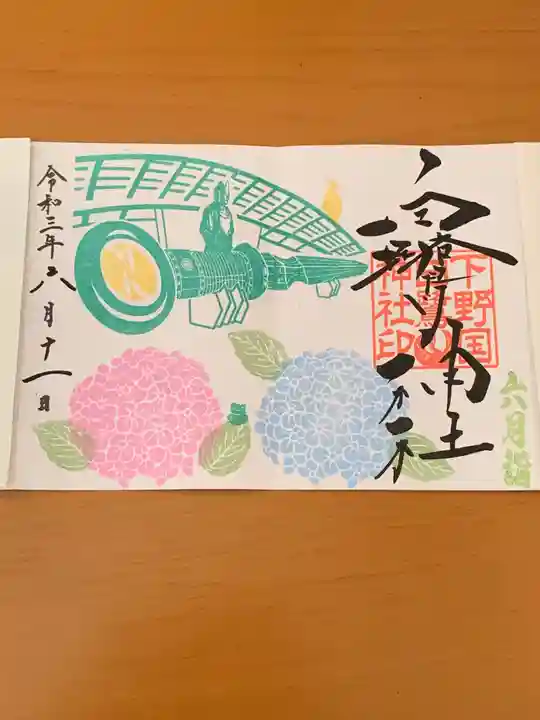 白鷺神社
下野国
白鷺
神社印
六月詣
令和三年六月十一日